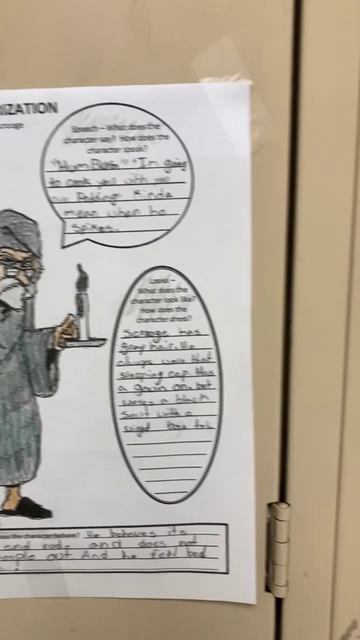 IZATION
crooge
Speech – What does the
character say? How does the
character speak?
"Hum Bug" "I'm going
to cook you with your
own Puddings. Kinda
mean when he
Spikes.
Looks –
What does the
character look like?
How does the
character dress?
Scrooge has
gray hair. He
always wears that
sleeping cap. Has
a gown on, but
wears a black
Suit with a
does the character behave? He behaves its
and rude and does not
people out. And he felt bad